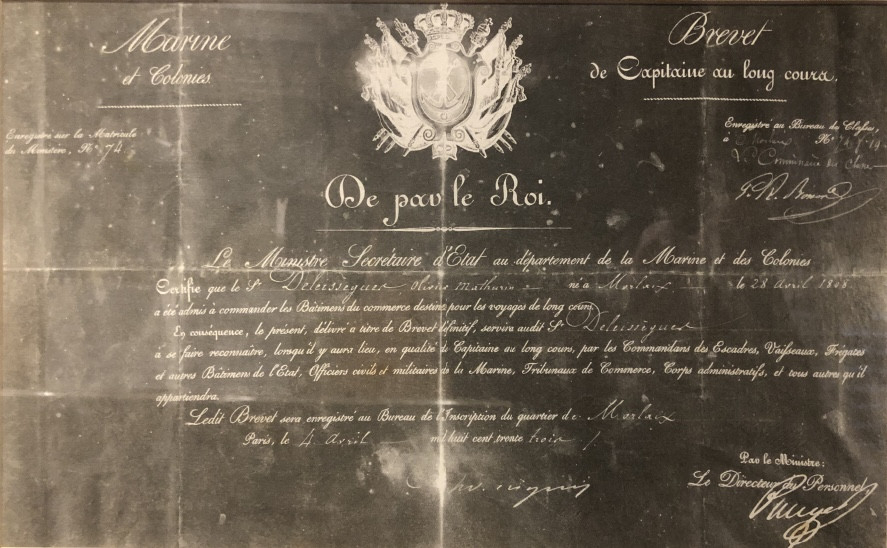 Marine
et Colonies
Brevet
de Capitaine au long cours.
Enregistré sur la Matricule
du Ministère, N° 74
Enregistré au Bureau des Classes,
à Morlaix N°
De par le Roi.
Le Ministre Secrétaire d'Etat au département de la Marine et des Colonies
Certifie que le Sr Delessegues Olivier Mathurin né à Morlaix le 28 Avril 1808
a été admis à commander les Bâtimens du commerce destinés pour les voyages de long cours
En conséquence, le présent, délivré à titre de Brevet définitif, servira audit Sr Delessegues
à se faire reconnaître, lorsqu'il y aura lieu, en qualité de Capitaine au long cours, par les Commandans des Escadres, Vaisseaux, Frégates
et autres Bâtimens de l'Etat, Officiers civils et militaires de la Marine, Tribunaux de Commerce, Corps administratifs, et tous autres qu'il
appartiendra.
Ledit Brevet sera enregistré au Bureau de l'Inscription du quartier de Morlaix
Paris, le 4 Avril mil huit cent trente trois
Par le Ministre:
Le Directeur du Personnel